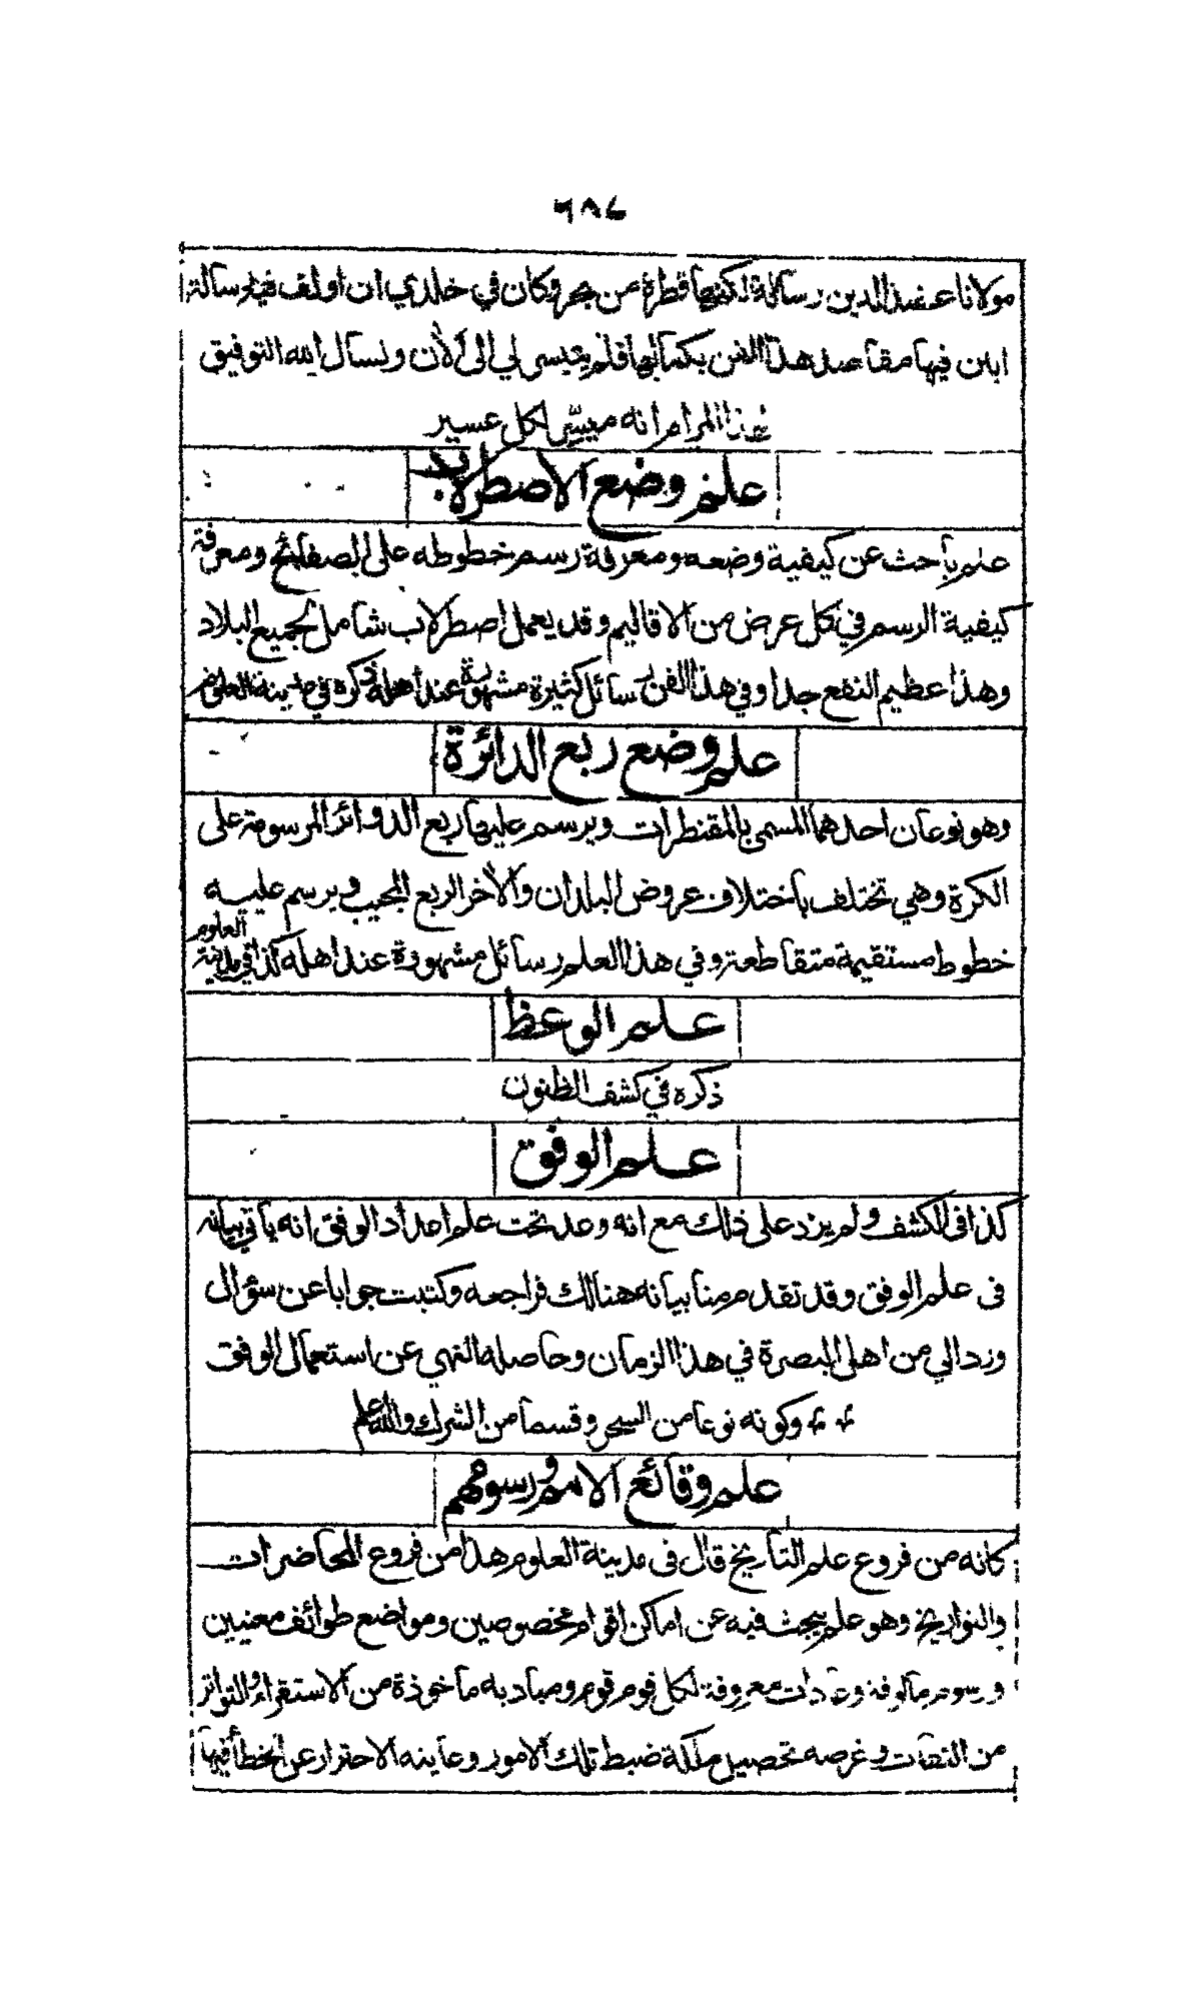 ٦٨٧
مولانا عضد الدين رسالة لكنها قطرة من بحر وكان في خلدي ان اولف فيه رسالة
ابين فيها مقاصد هذا الفن بكمالها فلم يتيسر لي الى الآن ونسأل الله التوفيق
لهذا المرام انه ميسّر لكل عسير
علم وضع الاصطرلاب
علم باحث عن كيفية وضعه ومعرفة رسم خطوطه على الصفائح ومعرفة
كيفية الرسم في كل عرض من الاقاليم وقد يعمل اصطرلاب شامل لجميع البلاد
وهذا عظيم النفع جدا وفي هذا الفن رسائل كثيرة مشهورة عند اهله ذكره في مدينة العلوم
علم وضع ربع الدائرة
وهو نوعان احدهما المسمى بالمقنطرات ويرسم عليها ربع الدوائر المرسومة على
الكرة وهي تختلف باختلاف عروض البلدان والآخر الربع المجيب ويرسم عليه
خطوط مستقيمة متقاطعة وفي هذا العلم رسائل مشهورة عند اهله كذا في مدينة العلوم
علم الوعظ
ذكره في كشف الظنون
علم الوفق
كذا في الكشف ولم يزد على ذلك مع انه وعد تحت علم اعداد الوفق انه يأتي بيانه
في علم الوفق وقد تقدم منا بيانه هنالك فراجعه وكتبت جوابا عن سؤال
ورد الي من اهل البصرة في هذا الزمان وحاصله النهي عن استعمال الوفق
وكونه نوعا من السحر وقسما من الشرك والله اعلم
علم وقائع الامم ورسومهم
كانه من فروع علم التأريخ قال في مدينة العلوم هذا من فروع المحاضرات
والتواريخ وهو علم يبحث فيه عن اماكن اقوام مخصوصين ومواضع طوائف معنيين
ورسوم مألوفة وعادات معروفة لكل قوم قوم ومباديه مأخوذة من الاستقراء والتواتر
من الثقات وغرضه تحصيل ملكة ضبط تلك الامور وغايته الاحتراز عن الخطأ فيها